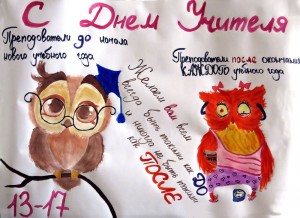 С Днем Учителя
Преподователи до начала
нового учебного года
Преподователи после окончания
КАЖДОГО учебного года
Желаем вам всем
всегда быть такими как ДО
и никогда не быть такими
как ПОСЛЕ
13-17